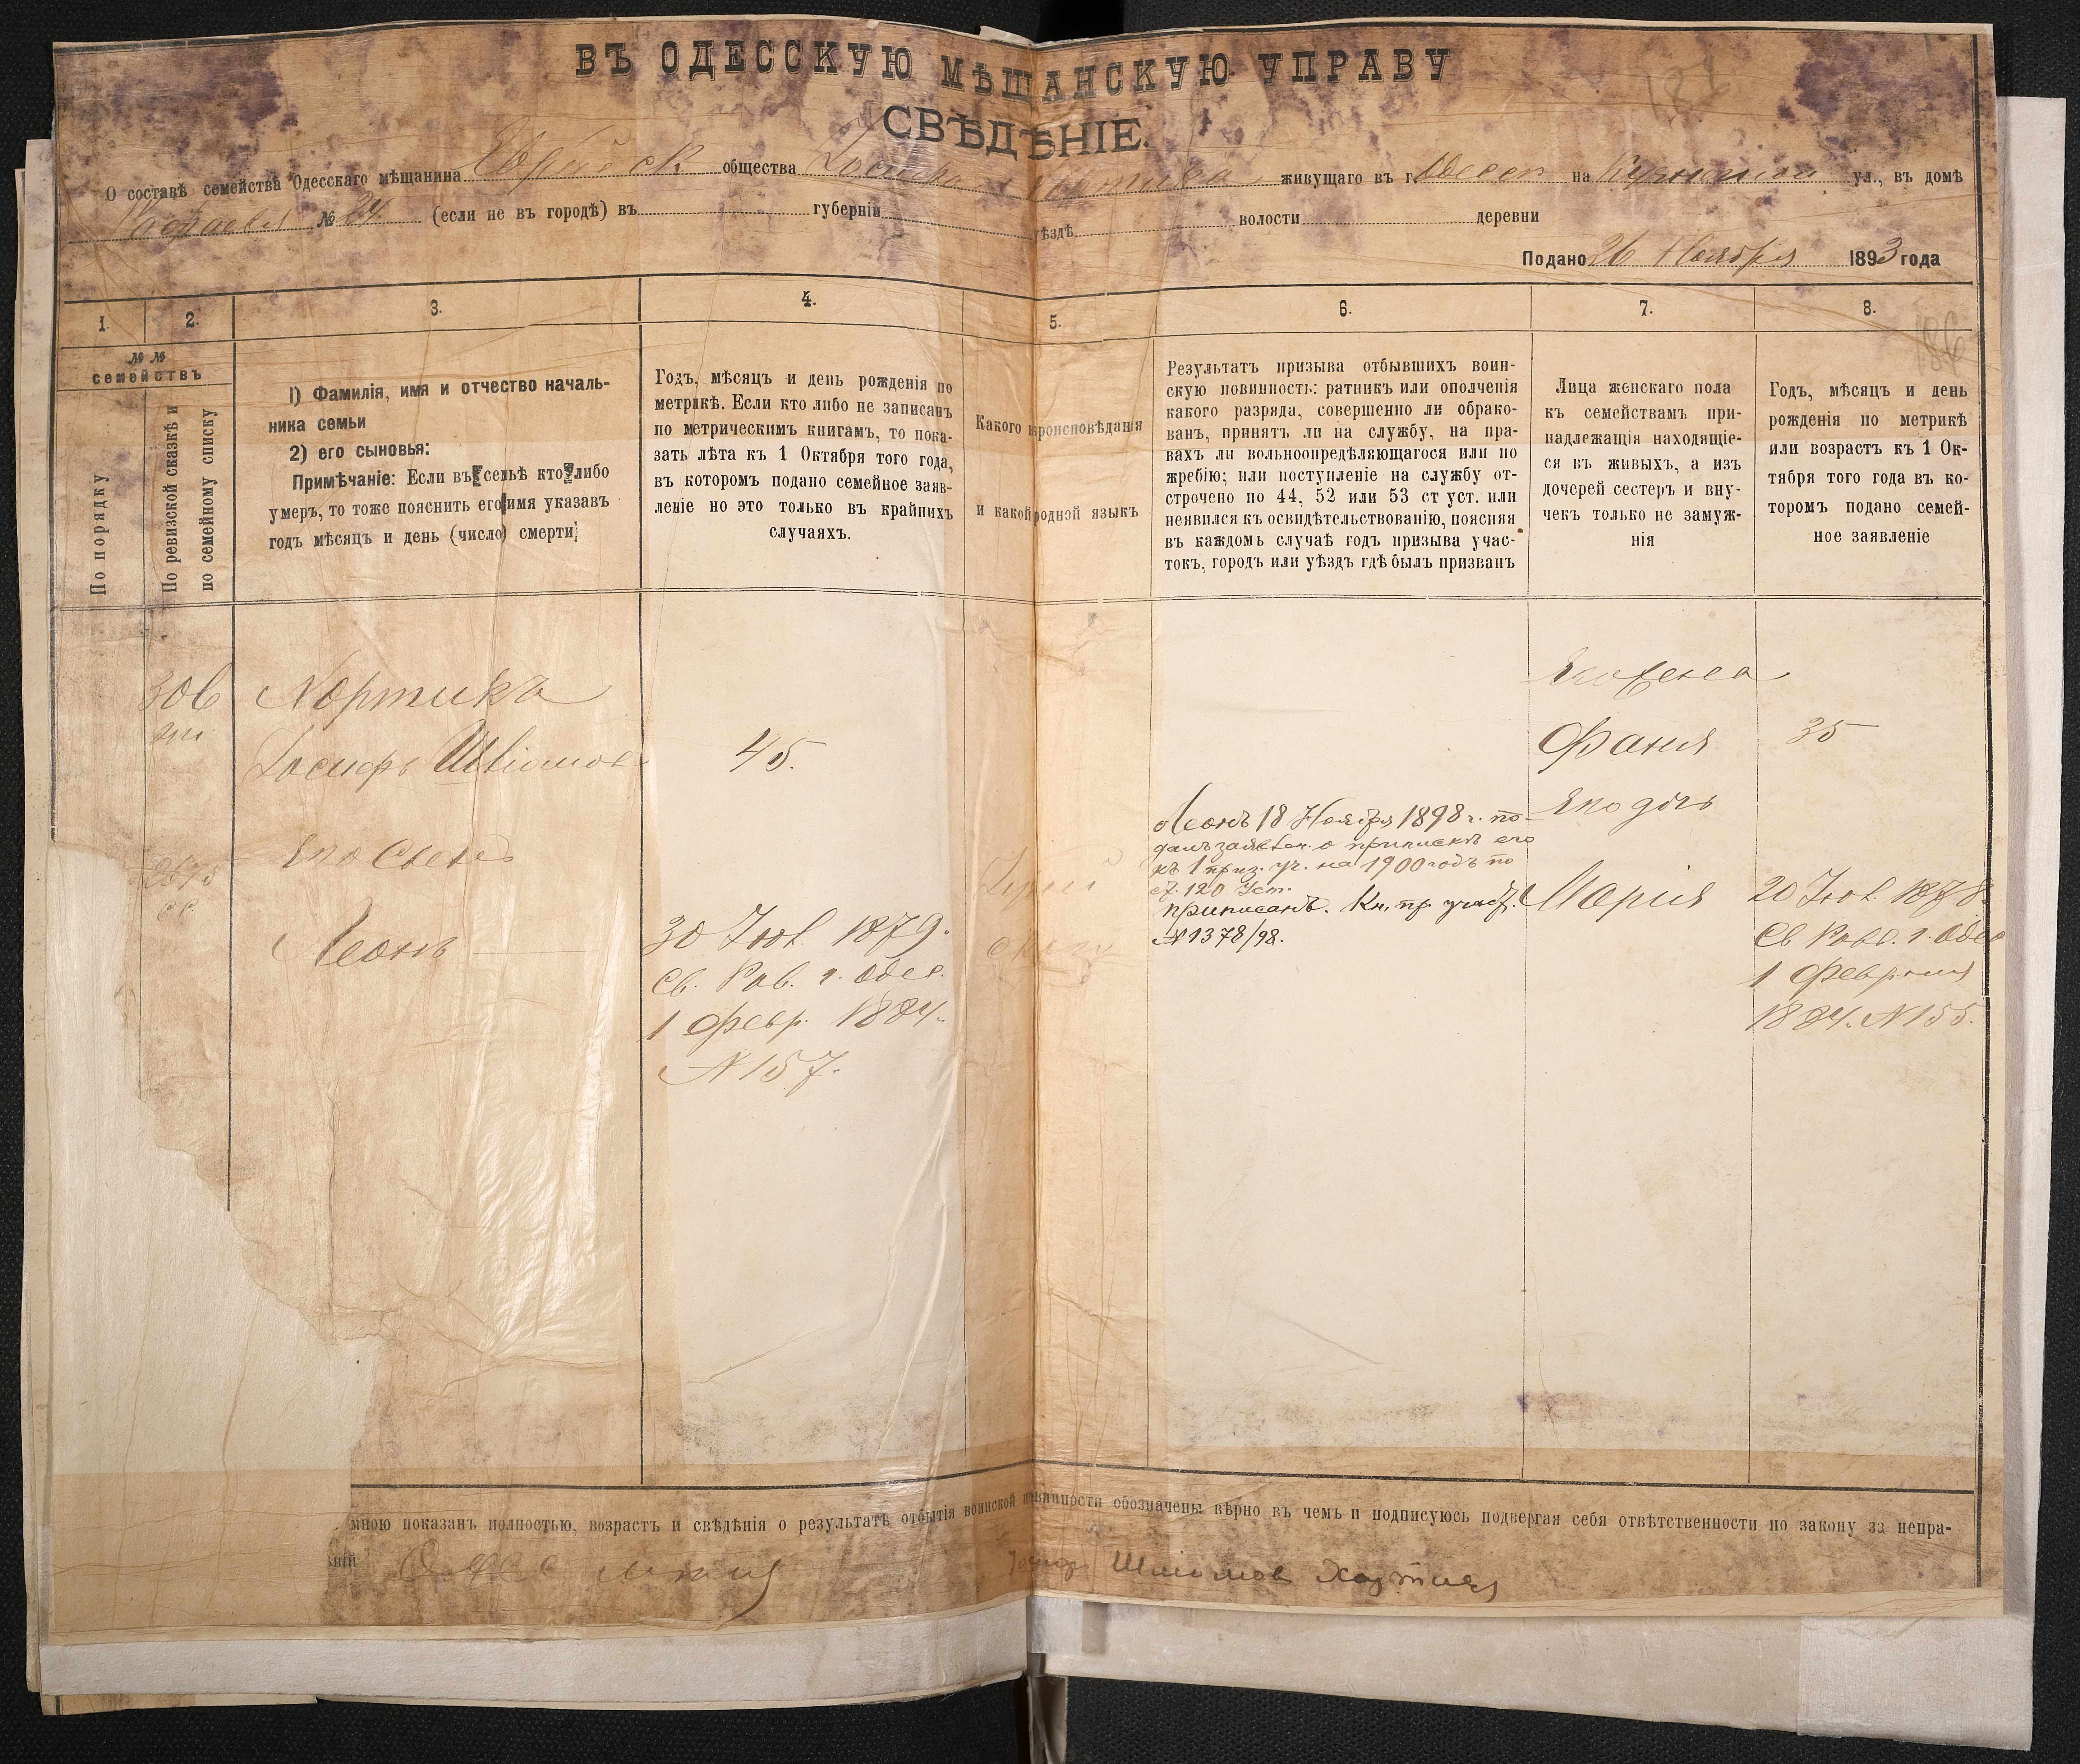 ВЪ ОДЕССКУЮ МѢЩАНСКУЮ УПРАВУ
СВѢДѢНІЕ.
О составѣ семейства Одесскаго мѣщанина Еврейск общества Іосифа Хортика живущаго въ г. Одессѣ на ул., въ домѣ
№ 24 (если не въ городѣ) въ губерніи уѣздѣ волости деревни
Подано 26 Ноября 1893 года
1. 2. 3. 4. 5. 6. 7. 8.
№ №
семействъ
По порядку
По ревизской сказкѣ и
по семейному списку
1) Фамилія, имя и отчество началь-
ника семьи
2) его сыновья:
Примѣчаніе: Если въ семьѣ кто либо
умеръ, то тоже пояснить его имя указавъ
годъ мѣсяцъ и день (число) смерти
Годъ, мѣсяцъ и день рожденія по
метрикѣ. Если кто либо не записанъ
по метрическимъ книгамъ, то пока-
зать лѣта къ 1 Октября того года,
въ которомъ подано семейное заяв-
леніе но это только въ крайнихъ
случаяхъ.
Какого вѣроисповѣданія
и какой родной языкъ
Результатъ призыва отбывшихъ воин-
скую повинность: ратникъ или ополченія
какого разряда, совершенно ли обрако-
ванъ, принятъ ли на службу, на пра-
вахъ ли вольноопредѣляющагося или по
жребію; или поступленіе на службу от-
строчено по 44, 52 или 53 ст уст. или
неявился къ освидѣтельствованію, поясняя
въ каждомъ случаѣ годъ призыва учас-
токъ, городъ или уѣздъ гдѣ былъ призванъ
Лица женскаго пола
къ семействамъ при-
надлежащія находящіе-
ся въ живыхъ, а изъ
дочерей сестеръ и вну-
чекъ только не замуж-
нія
Годъ, мѣсяцъ и день
рожденія по метрикѣ
или возрастъ къ 1 Ок-
тября того года въ ко-
торомъ подано семей-
ное заявленіе
306
Хортикъ
Іосифъ Шліомовъ
45.
Его Сынъ
Леонъ
30 Іюл. 1879.
Св. Рав. г. Одес.
1 Февр. 1884.
N 157.
Леонъ 18 Ноября 1898 г. по-
далъ заявлен. о припискѣ его
къ 1 приз. уч. на 1900 годъ по
ст. 120 Уст.
приписанъ. Кн. пр. участ.
N 1378/98.
Его жена
Фаня
35
Его дочь
Марія
20 Іюл. 1878.
Св Рав. г. Одес
1 Февраля
1884. N 155.
мною показанъ полностью, возрастъ и свѣдѣнія о результатѣ отбытія воинской повинности обозначены вѣрно въ чемъ и подписуюсь подвергая себя отвѣтственности по закону за непра-
Шлиомов Хортикъ
186